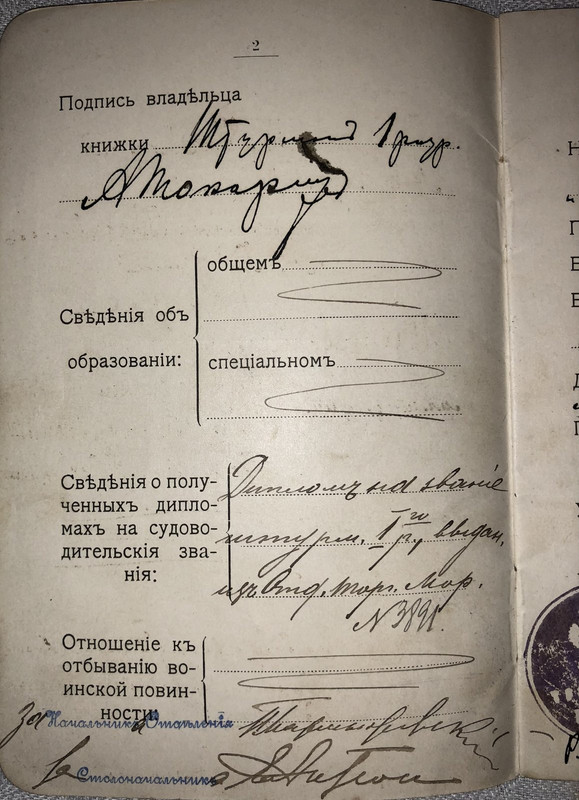 2
Подпись владѣльца
книжки Штурман 1 разр.
общемъ
Свѣдѣнія объ
образованіи:
спеціальномъ
Свѣдѣнія о полу-
ченныхъ дипло-
махъ на судово-
дительскія зва-
нія:
Дипломъ на званіе
штурм. I го р., выдан.
изъ Отд. Торг. Мор.
N 3891.
Отношеніе къ
отбыванію во-
инской повин-
ности:
за Начальника Отдѣленія
Столоначальника